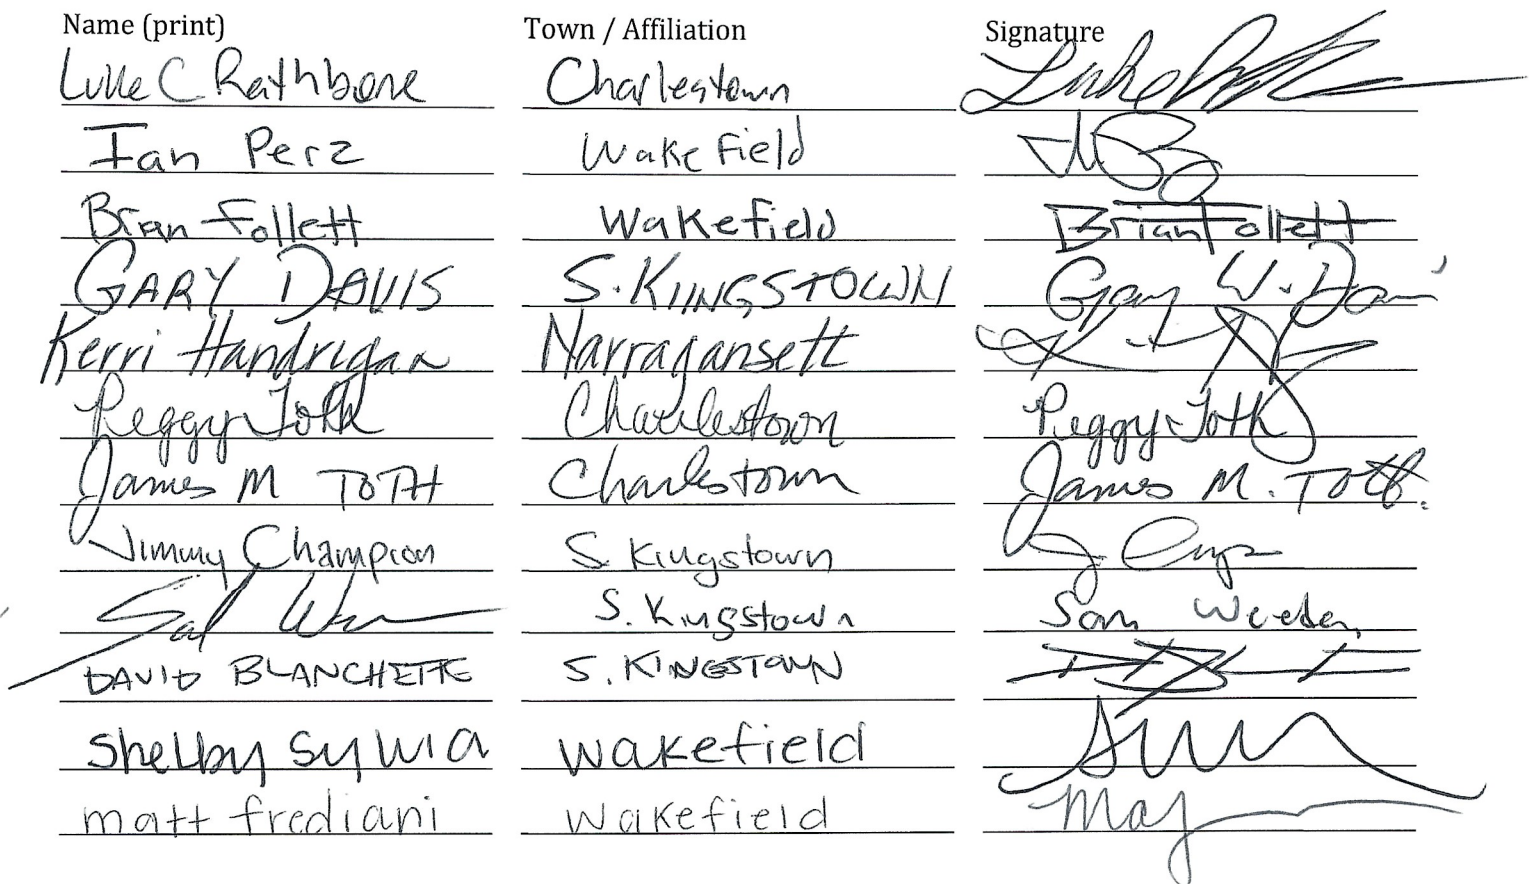 Name (print) Town / Affiliation Signature
Luke C Rathbone Charlestown Luke
Ian Perz Wakefield
Brian Follett Wakefield Brian Follett
GARY DAVIS S. KIINGSTOWN Gary W. Davis
Kerri Handrigan Narragansett
Peggy Toth Charlestown Peggy Toth
James M TOTH Charlestown James M. Toth.
Jimmy Champion S. Kingstown J
Sal S. Kingstown Sam Weeden
DAVID BLANCHETTE S. KINGSTOWN
Shelby Sylvia Wakefield
matt frediani Wakefield